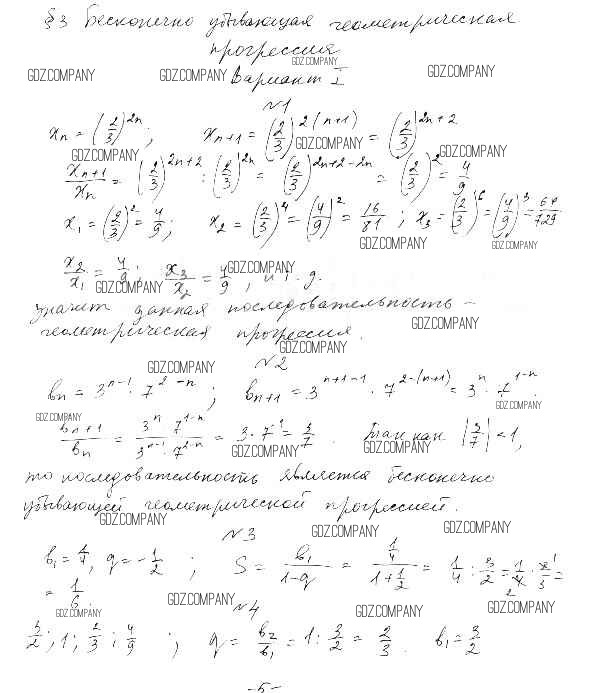 §3 Бесконечно убывающая геометрическая
прогрессия
GDZ.COMPANY
GDZ.COMPANY GDZ.COMPANY Вариант I GDZ.COMPANY
№1
xₙ = (2/3)²ⁿ; xₙ₊₁ = (2/3)²⁽ⁿ⁺¹⁾ = (2/3)²ⁿ⁺²
GDZ.COMPANY GDZ.COMPANY GDZ.COMPANY
xₙ₊₁/xₙ = (2/3)²ⁿ⁺² : (2/3)²ⁿ = (2/3)²ⁿ⁺²⁻²ⁿ = (2/3)² = 4/9
x₁ = (2/3)² = 4/9; x₂ = (2/3)⁴ = (4/9)² = 16/81; x₃ = (2/3)⁶ = (4/9)³ = 64/729
GDZ.COMPANY GDZ.COMPANY
x₂/x₁ = 4/9; x₃/x₂ = 4/9, и т.д.
GDZ.COMPANY GDZ.COMPANY
значит данная последовательность –
геометрическая прогрессия.
GDZ.COMPANY GDZ.COMPANY
№2
GDZ.COMPANY
bₙ = 3ⁿ⁻¹ · 7²⁻ⁿ; bₙ₊₁ = 3ⁿ⁺¹⁻¹ · 7²⁻⁽ⁿ⁺¹⁾ = 3ⁿ · 7¹⁻ⁿ.
GDZ.COMPANY GDZ.COMPANY
bₙ₊₁/bₙ = 3ⁿ · 7¹⁻ⁿ / 3ⁿ⁻¹ · 7²⁻ⁿ = 3 · 7⁻¹ = 3/7. Так как |3/7| < 1,
GDZ.COMPANY GDZ.COMPANY
то последовательность является бесконечно
убывающей геометрической прогрессией.
GDZ.COMPANY GDZ.COMPANY GDZ.COMPANY
№3
b₁ = 1/4, q = -1/2; S = b₁/1-q = 1/4 / 1+1/2 = 1/4 : 3/2 = 1/4 · 2/3 =
= 1/6.
GDZ.COMPANY GDZ.COMPANY GDZ.COMPANY GDZ.COMPANY
№4
3/2; 1; 2/3; 4/9; q = b₂/b₁ = 1 : 3/2 = 2/3. b₁ = 3/2
-5-